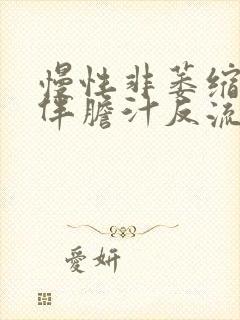 慢性非萎缩
伴膽汁反流
愛妍